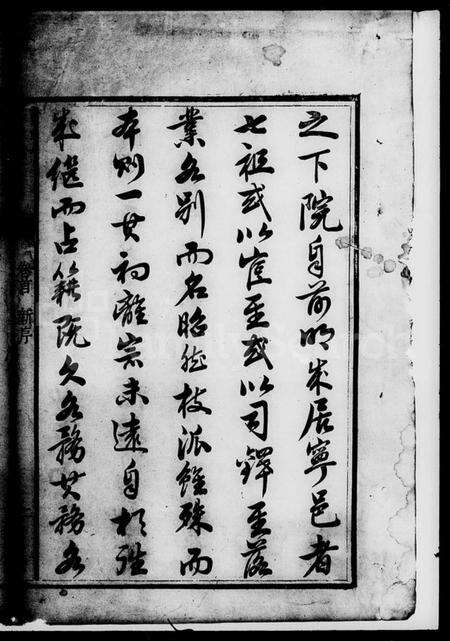 之下院自前明来居寧邑者
七祖或以宦至或以司鐸至落
業各别而名昭然枝派雖殊而
本则一其初離宗未遠自相
繼而占籍既久各務其務各
卷首 新序